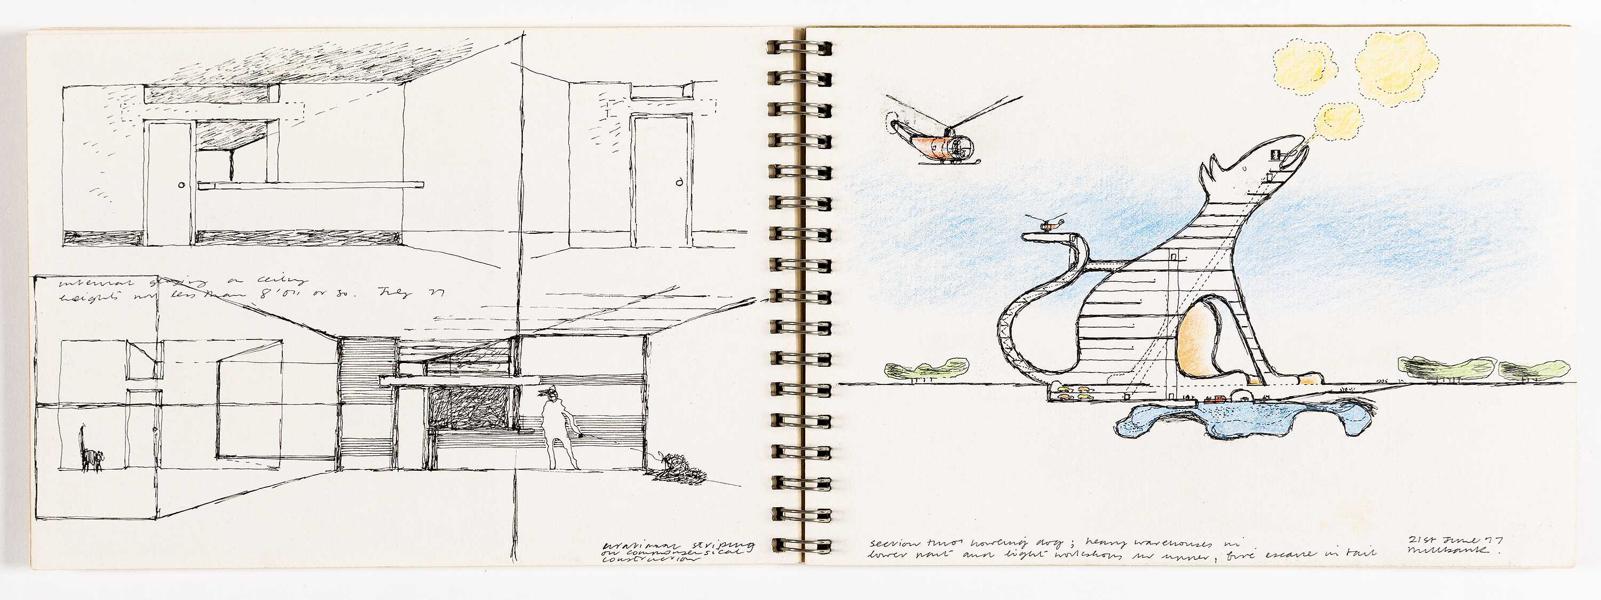 internal glazing on ceiling
heights not less than 8'0" or so. July 77
irrational striping
on commonsensical
construction
section thro' howling dog; heavy warehouses in
lower part and light workshops in upper, fire escape in tail
21st June 77
Millbank.